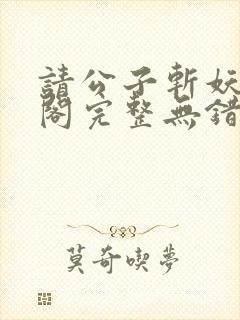 請公子斬妖
閣完整無錯
莫奇喫夢